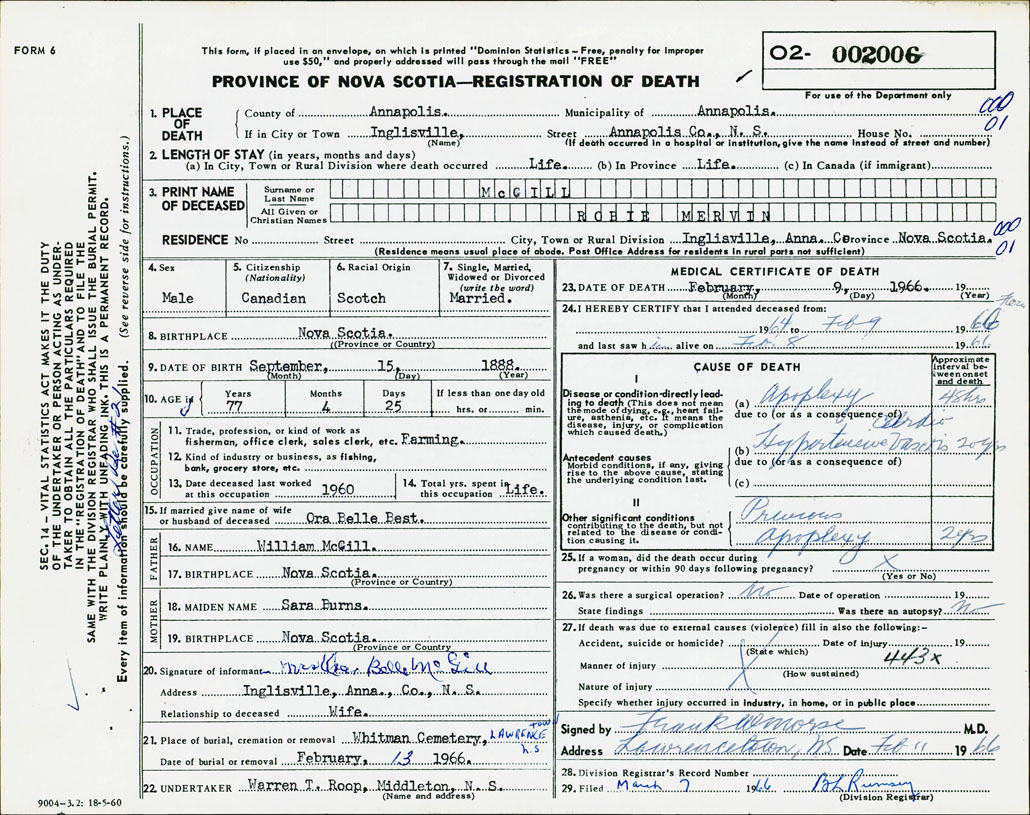 FORM 6
This form, if placed in an envelope, on which is printed "Dominion Statistics – Free, penalty for improper
use $50," and properly addressed will pass through the mail "FREE"
PROVINCE OF NOVA SCOTIA—REGISTRATION OF DEATH
O2- 002006
For use of the Department only
1. PLACE OF DEATH
County of Annapolis. Municipality of Annapolis. 000
If in City or Town Inglisville, Street Annapolis Co., N. S. House No. 01
(Name) (If death occurred in a hospital or institution, give the name instead of street and number)
2. LENGTH OF STAY (in years, months and days)
(a) In City, Town or Rural Division where death occurred Life. (b) In Province Life. (c) In Canada (if immigrant)
3. PRINT NAME OF DECEASED
Surname or Last Name McGILL
All Given or Christian Names ROBIE MERVIN
RESIDENCE No Street City, Town or Rural Division Inglisville, Anna. Co Province Nova Scotia. 000 01
(Residence means usual place of abode. Post Office Address for residents in rural parts not sufficient)
4. Sex Male
5. Citizenship (Nationality) Canadian
6. Racial Origin Scotch
7. Single, Married, Widowed or Divorced (write the word) Married.
8. BIRTHPLACE Nova Scotia.
(Province or Country)
9. DATE OF BIRTH September, 15, 1888.
(Month) (Day) (Year)
10. AGE if Years 77 Months 4 Days 25 If less than one day old hrs. or min.
OCCUPATION
11. Trade, profession, or kind of work as
fisherman, office clerk, sales clerk, etc. Farming.
12. Kind of industry or business, as fishing,
bank, grocery store, etc.
13. Date deceased last worked at this occupation 1960
14. Total yrs. spent in this occupation Life.
15. If married give name of wife
or husband of deceased Ora Belle Best.
FATHER
16. NAME William McGill.
17. BIRTHPLACE Nova Scotia.
(Province or Country)
MOTHER
18. MAIDEN NAME Sara Burns.
19. BIRTHPLACE Nova Scotia.
(Province or Country)
20. Signature of informant Mrs Ora Belle McGill
Address Inglisville, Anna., Co., N. S.
Relationship to deceased Wife.
21. Place of burial, cremation or removal Whitman Cemetery, LAWRENCE town N.S
Date of burial or removal February, 13 1966.
22. UNDERTAKER Warren T. Roop, Middleton, N. S.
(Name and address)
MEDICAL CERTIFICATE OF DEATH
23. DATE OF DEATH February, 9, 1966. 19
(Month) (Day) (Year)
24. I HEREBY CERTIFY that I attended deceased from:
1964 to Feb 9 1966
and last saw him alive on Feb 8 1966
CAUSE OF DEATH
Approximate interval between onset and death
I
Disease or condition directly leading to death (This does not mean
the mode of dying, e.g., heart failure, asthenia, etc. It means the
disease, injury, or complication
which caused death.)
(a) Apoplexy 48 hrs
due to (or as a consequence of) Cardio
(b) Hypertensive Vascis 20 yrs
due to (or as a consequence of)
(c)
Antecedent causes
Morbid conditions, if any, giving
rise to the above cause, stating
the underlying condition last.
II
Other significant conditions
contributing to the death, but not
related to the disease or condition causing it.
Previous
Apoplexy 2 yrs
25. If a woman, did the death occur during
pregnancy or within 90 days following pregnancy? X
(Yes or No)
26. Was there a surgical operation? No Date of operation 19
State findings Was there an autopsy? No
27. If death was due to external causes (violence) fill in also the following:–
Accident, suicide or homicide? Date of injury 19
(State which)
443x
Manner of injury
(How sustained)
Nature of injury
Specify whether injury occurred in industry, in home, or in public place
Signed by Frank W Morse M.D.
Address Lawrencetown, NS Date Feb 11 1966
28. Division Registrar's Record Number
29. Filed March 7 1966 BL Rumsey
(Division Registrar)
9004–3.2: 18-5-60
SEC. 14 – VITAL STATISTICS ACT MAKES IT THE DUTY
OF THE UNDERTAKER OR PERSON ACTING AS UNDERTAKER TO OBTAIN ALL THE PARTICULARS REQUIRED
IN THE "REGISTRATION OF DEATH" AND TO FILE THE
SAME WITH THE DIVISION REGISTRAR WHO SHALL ISSUE THE BURIAL PERMIT.
WRITE PLAINLY WITH UNFADING INK. THIS IS A PERMANENT RECORD.
Every item of information should be carefully supplied. (See reverse side for instructions.)